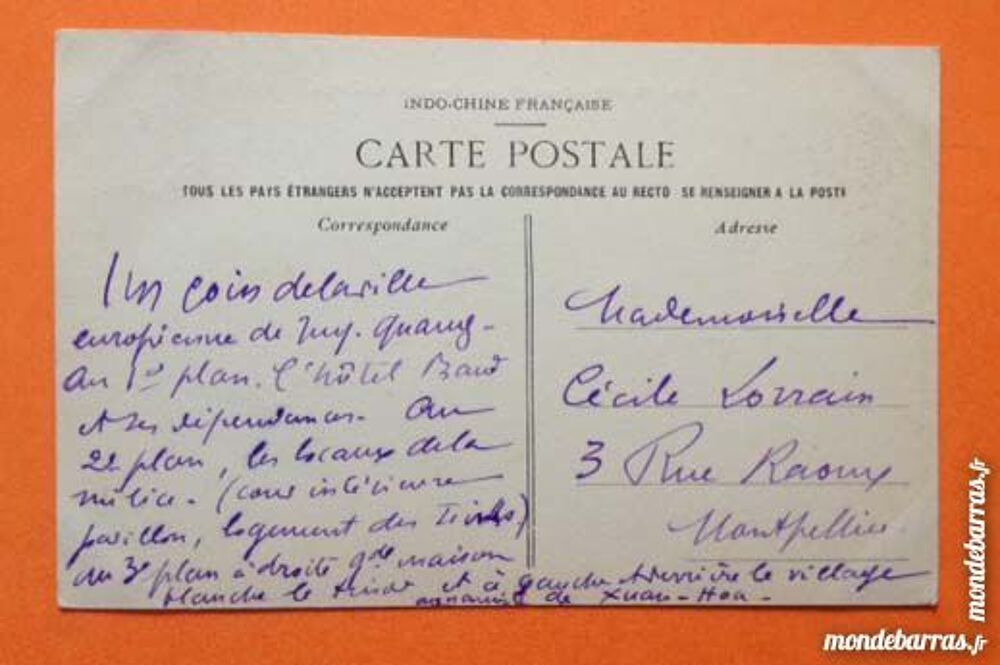 INDO-CHINE FRANÇAISE
CARTE POSTALE
TOUS LES PAYS ÉTRANGERS N'ACCEPTENT PAS LA CORRESPONDANCE AU RECTO SE RENSEIGNER A LA POSTE
Correspondance
Un coin de la ville
européenne de Tuy. Quang.
Au 1er plan. l'hôtel
et ses dépendances. Au
2e plan, les locaux de la
milice. (cour intérieure
pavillon, logement des
au 3e plan à droite gde maison
blanche le et à gauche derrière le village
annamite de Xuan-Hoa.
Adresse
Mademoiselle
Cécile Lorrain
3 Rue Raoux
Montpellier
mondebarras.fr
mondebarras.fr